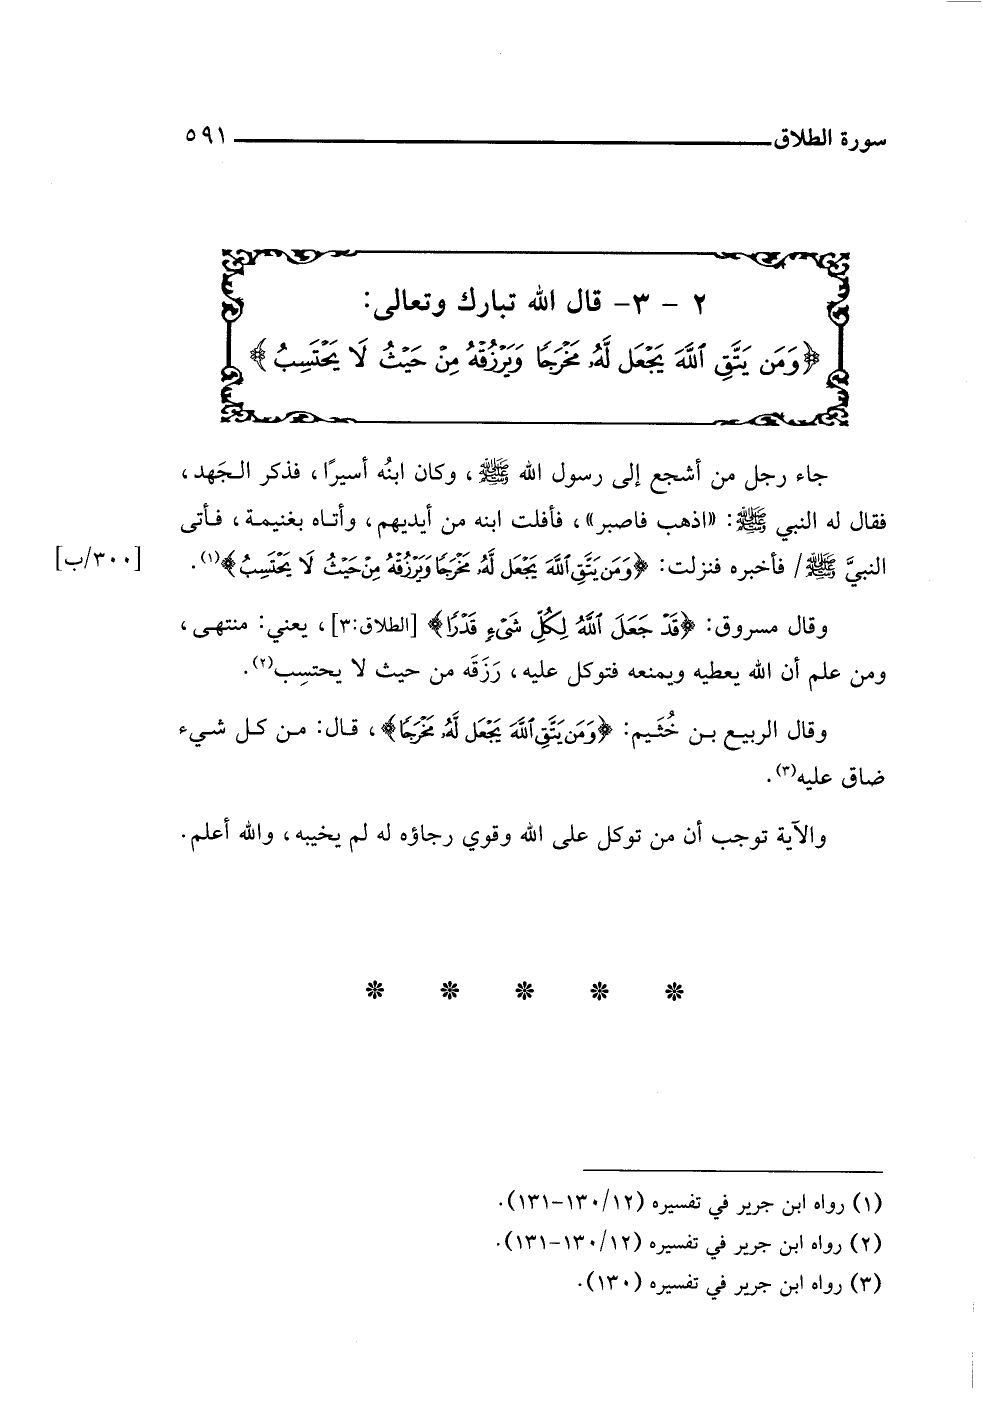 سورة الطلاق ٥٩١
٢ - ٣- قال الله تبارك وتعالى:
﴿وَمَن يَتَّقِ ٱللَّهَ يَجْعَل لَّهُۥ مَخْرَجًا وَيَرْزُقْهُ مِنْ حَيْثُ لَا يَحْتَسِبُ﴾
جاء رجل من أشجع إلى رسول الله ﷺ، وكان ابنُه أسيرًا، فذكر الجَهد،
فقال له النبي ﷺ: «اذهب فاصبر»، فأفلت ابنه من أيديهم، وأتاه بغنيمة، فأتى
النبيَّ ﷺ/ فأخبره فنزلت: ﴿وَمَن يَتَّقِ ٱللَّهَ يَجْعَل لَّهُۥ مَخْرَجًا وَيَرْزُقْهُ مِنْ حَيْثُ لَا يَحْتَسِبُ﴾(١). [٣٠٠/ب]
وقال مسروق: ﴿قَدْ جَعَلَ ٱللَّهُ لِكُلِّ شَىْءٍ قَدْرًا﴾ [الطلاق:٣]، يعني: منتهى،
ومن علم أن الله يعطيه ويمنعه فتوكل عليه، رَزَقَه من حيث لا يحتسِب(٢).
وقال الربيع بن خُثَيم: ﴿وَمَن يَتَّقِ ٱللَّهَ يَجْعَل لَّهُۥ مَخْرَجًا﴾، قال: من كل شيء
ضاق عليه(٣).
والآية توجب أن من توكل على الله وقوي رجاؤه له لم يخيبه، والله أعلم.
(١) رواه ابن جرير في تفسيره (١٣٠/١٢-١٣١).
(٢) رواه ابن جرير في تفسيره (١٣٠/١٢-١٣١).
(٣) رواه ابن جرير في تفسيره (١٣٠).